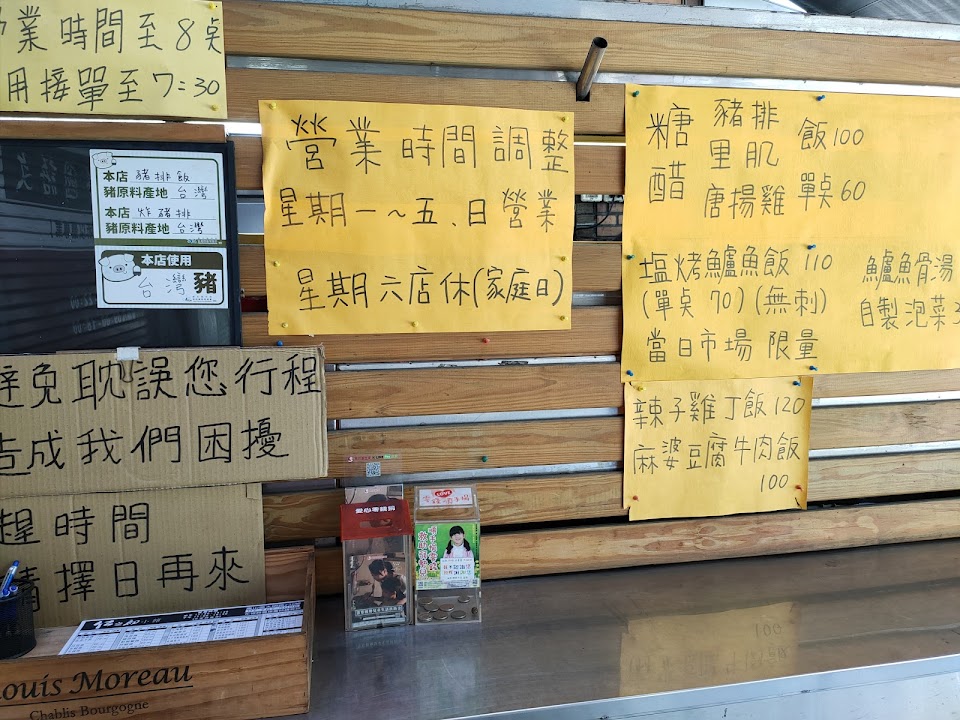 業時間至8桌
用接單至7=30
營業時間調整
星期一~五、日營業
星期六店休(家庭日)
糖醋 豬排 里肌 飯100
唐揚雞 單桌60
塩烤鱸魚飯 110
(單桌 70)(無刺)
當日市場 限量
鱸魚骨湯
自製泡菜
辣子雞丁飯120
麻婆豆腐牛肉飯
100
本店 豬排飯
豬原料產地 台灣
本店 炸豬排
豬原料產地 台灣
本店使用
台灣豬
避免耽誤您行程
造成我們困擾
趕時間
請擇日再來
愛心零錢捐
LOVE
Louis Moreau
Chablis Bourgogne